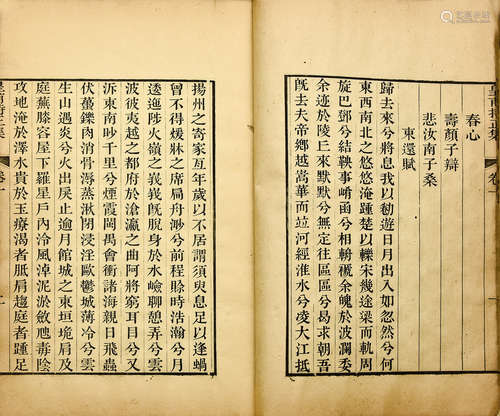 春心
壽顏子辯
悲汝南子桑
東還賦
歸去來兮將息我以勌遊日月出入如忽然兮何
東西南北之悠悠淹踵楚以轢宋幾途梁而軌周
旋巴鄧兮結鞅事崤函兮相輈褫余魄於波瀾委
余迹於陵丘來默默兮無定往區區兮曷求朝吾
既去夫帝鄉越嵩華而竝河經淮水兮凌大江抵
揚州之寄家亙年歲以不居謂須臾息足以逢蝸
曾不得煖牀之席扃舟渺兮前程賒時浩瀚兮月
逶迤陟火嶺之峩峩既脫身於水嶮聊憩弄兮雲
波彼越之都府於滄瀛之曲阿將窮耳目兮又
泝東南吵千里兮煙霞岡禺會衝諸海親日飛蟲
伏蠆鑠肉消骨濤蒸湫閉浸淫歐鬱城薄冷兮雲
生山遇炎兮火出戾止逾月館城之東垣埆肩及
庭蕪膝容屋下羅星戶內泠風淖泥淤斂虺毒陰
攻地淹於澤水貴於玉療渴者胝肩趨庭者踵足